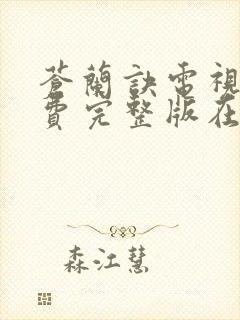 蒼蘭訣電視
費完整版在
森江慧